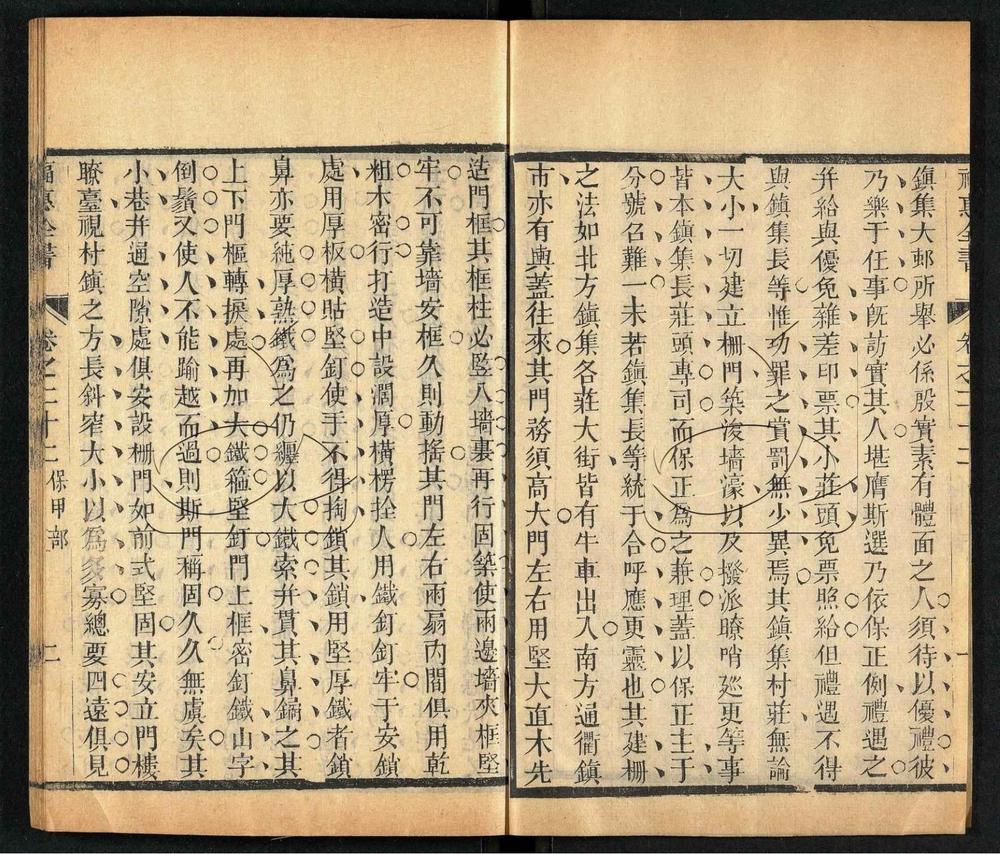 福惠全書 卷之二十二 一
鎮集大邨所舉必係殷實素有體面之人須待以優禮彼
乃樂于任事旣訪實其人堪膺斯選乃依保正例禮遇之
并給與優免雜差印票其小莊頭免票照給但禮遇不得
與鎮集長等惟功罪之賞罰無少異焉其鎮集村莊無論
大小一切建立柵門築浚墻濠以及撥派瞭哨廵更等事
皆本鎮集長莊頭專司而保正爲之兼理蓋以保正主于
分號召難一未若鎮集長等統于合呼應更靈也其建柵
之法如北方鎮集各莊大街皆有牛車出入南方通衢鎮
市亦有輿蓋往來其門務須高大門左右用堅大直木先
造門框其框柱必竪入墻裏再行固築使兩邊墻夾框堅
牢不可靠墻安框久則動搖其門左右兩扇內閤俱用乾
粗木密行打造中設濶厚橫楞拴人用鐵釘釘牢于安鎖
處用厚板橫貼堅釘使手不得掏鎖其鎖用堅厚鐵者鎖
鼻亦要純厚熟鐵爲之仍纒以大鐵索并貫其鼻鎖之其
上下門樞轉捩處再加大鐵箍堅釘門上框密釘鐵山字
倒鬚又使人不能踰越而過則斯門稱固久久無虞矣其
小巷并通空隙處俱安設柵門如前式堅固其安立門樓
瞭臺視村鎮之方長斜窄大小以爲多寡總要四遠俱見
福惠全書 卷之二十二 保甲部 二